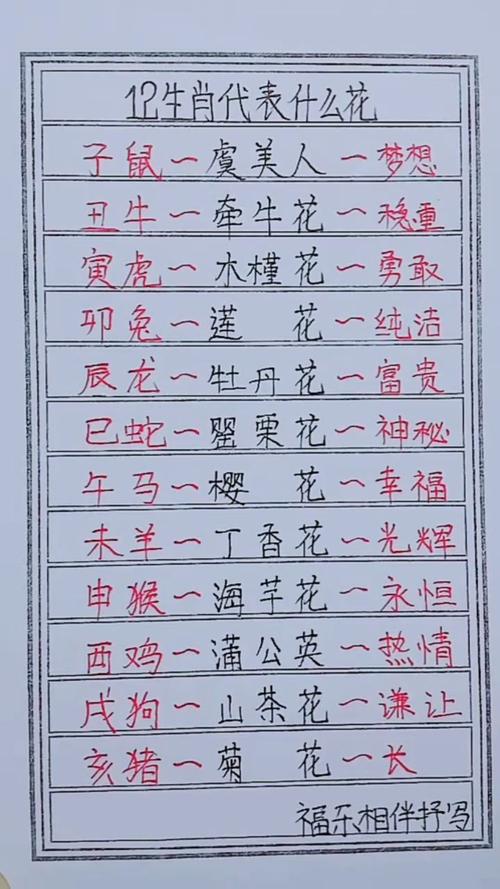 12生肖代表什么花
子鼠一虞美人一梦想
丑牛一牵牛花一稳重
寅虎一木槿花一勇敢
卯兔一莲 花一纯洁
辰龙一牡丹花一富贵
巳蛇一罂栗花一神秘
午马一樱 花一幸福
未羊一丁香花一光辉
申猴一海芋花一永恒
酉鸡一蒲公英一热情
戌狗一山茶花一谦让
亥猪一菊 花一长
福乐相伴抒写